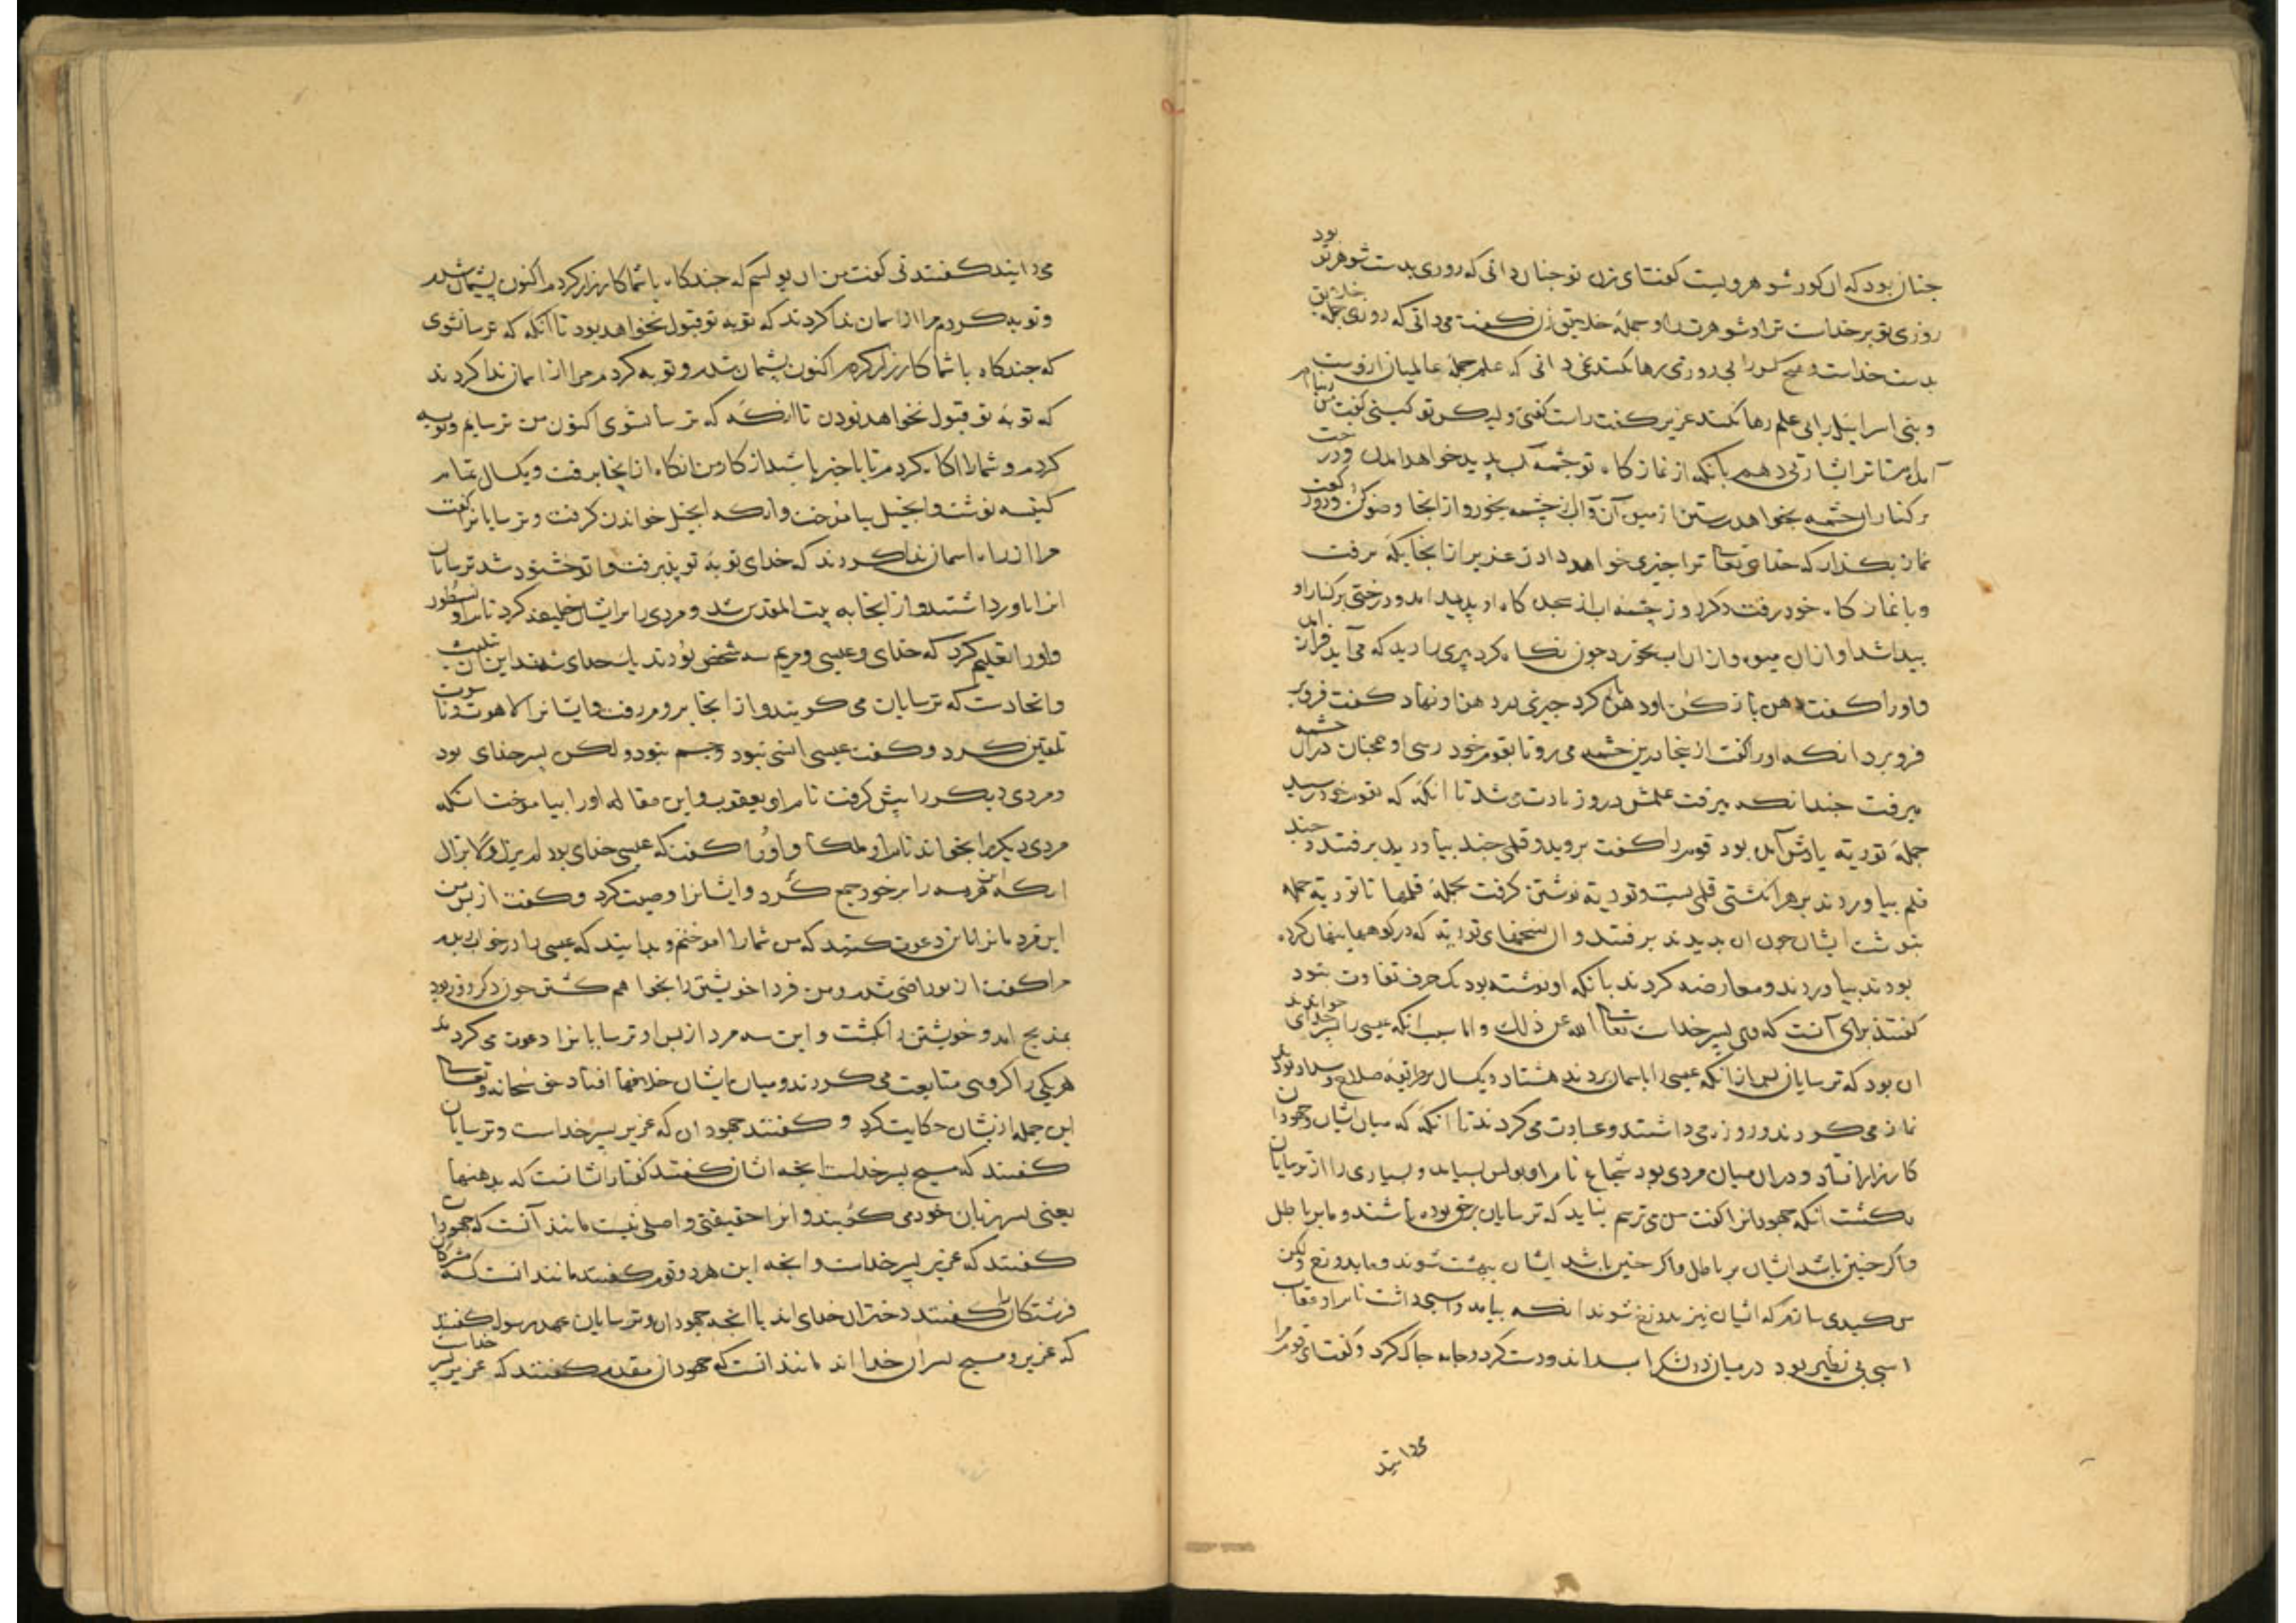 جنان بود که ان کور شوهر ویست کفتا ای زن تو جنان دانی که روزی بدست شوهر تو بود
روزی تو بر خداست ترا و شوهر ترا و جملهٔ خلایق زن کفت می دانی که روزی جمله خلایق
بدست خداست و هیچ کس را بی روزی رها نکند نمی دانی که علم جملهٔ عالمیان ازوست
و بنی اسراییل را بی علم رها نکند عزیر کفت راست کفتی ولیکن تو کیستی کفت من
آمدم تا ترا بشارتی دهم بانکه از نماز کاه تو جشمهٔ آب بدید خواهد امدن و درخت
بر کنار ان جشمه بخواهد رستن از میوه آن و آب از جشمه بخور و از انجا وضو کن و دو رکعت
نماز بکذار که خدای تعا ترا جیزی خواهد دادن عزیر از انجایکه برفت
و با نماز کاه خود رفت جشمه اب از کاه او بدید امد و درختی بر کنار او
بیدا شد او از ان میوه و از ان اب بخورد جون نکاه کرد بیری را دید که می آید فراز امد
و او را کفت دهن باز کن او دهن باز کرد جیزی در دهن او نهاد کفت فرو بر
فرو برد انکه او را کفت ازینجا درین جشمه می رو تا بقوم خود رسی او همجنان دران جشمه
میرفت جندانکه میرفت علمش در و زیادت می شد تا انکه که بقوم خود رسید
جملهٔ توریة یادش آمده بود قوم را کفت بروید و قلمی جند بیاورید برفتند و جند
قلم بیاوردند بر هر انکشتی قلمی ببست و توریة نوشتن کرفت بجملهٔ قلمها تا توریة جمله
بنوشت ایشان جون ان بدیدند برفتند و ان نسختهای توریة که در کوهها بنهان کرده
بودند بیاوردند و معارضه کردند بانکه او نوشته بود یک حرف تفاوت نبود
کفتند برای آنست که وی بسر خداست تعا الله عن ذلک و اما سبب انکه عیسی را بسر خدای خواندند
ان بود که ترسایان بس از انکه عیسی را باسمان بردند هشتاد و یکسال بر طریقهٔ صلاح و سداد بودند
نماز می کردند و روزه می داشتند و عبادت می کردند تا انکه که میان ایشان و جهودان
کارزار افتاد و دران میان مردی بود شجاع نام او بولس بیامد و بسیاری را از ترسایان
بکشت انکه جهودانرا کفت من می ترسم نباید که ترسایان بر حق بوده باشند و ما بر باطل
و اکر جنین باشد ایشان بیهشت شوند و ما بدوزخ ولکن
من کیدی سازم که ایشان نیز بدوزخ شوند انکه بیامد و اسبی داشت نام او عقاب
اسبی بی نظیر بود در میان دو لشکر و جامه جاک کرد و کفت ای قوم مرا
می دانید
می دانید کفتند نی کفت من ان بولسم که جندکاه با شما کارزار کردم اکنون بشیمان شدم
و توبه کردم مرا از اسمان ندا کردند که توبهٔ تو قبول نخواهد بود تا آنکه که ترسا شوی
که جندکاه با شما کارزار کردم اکنون بشیمان شدم و توبه کردم مرا از اسمان ندا کردند
که توبهٔ تو قبول نخواهد بودن تا انکه که ترسا شوی اکنون من ترسایم و توبه
کردم و شما را اکاه کردم تا باخبر باشید از کار من انکاه از انجا برفت و یکسال تمام
و انجیل بیاموخت وانکه انجیل خواندن کرفت و ترسایانرا کفت
مرا از راه اسمان ندا کردند که خدای توبهٔ تو بذیرفت و از تو خشنود شد ترسایان
انرا باور داشتند و از انجا به بیت المقدس شد و مردی را بر ایشان خلیفه کرد نام او نسطور
و او را تعلیم کرد که خدای و عیسی و مریم سه شخص بودند یک خدای شدند این ان تثلیث
و اتحادست که ترسایان می کویند و از انجا بروم رفت و ایشانرا لاهوت و ناسوت
تلقین کرد و کفت عیسی انسی نبود و جسم نبود ولکن بسر خدای بود
و مردی دیکر را بیش کرفت نام او یعقوب و این مقاله او را بیاموخت انکه
مردی دیکر را بخواند نام او ملکا و او را کفت که عیسی خدای بود لم یزل و لا یزال
انکه این هر سه را بر خود جمع کرد و ایشانرا وصیت کرد و کفت از بس من
این دعوت کنید که من شما را اموختم و بدانید که عیسی را در خواب دیدم
مرا کفت از تو راضی شدم و من فردا خویشتن را بخواهم کشتن جون دکر روز بود
بمذبح امد و خویشتن را بکشت و این سه مرد از بس او ترسایانرا دعوت می کردند
هر یکی را کروهی متابعت می کردند و میان ایشان خلافها افتاد حق سبحانه و تعا
این جمله ازیشان حکایت کرد و کفتند جهودان که عزیر بسر خداست و ترسایان
کفتند که مسیح بسر خداست انجه ایشان کفتند کفتار ایشانست که بدهنها
یعنی بسر زبان خود می کویند و انرا حقیقتی و اصلی نیست مانند آنست که جهودان
کفتند که عزیر بسر خداست و انجه این هر دو قوم کفتند مانند انست که مشرکان
فرشتکان را کفتند دختران خدای اند یا انجه جهودان و ترسایان عهد رسول کفتند
که عزیر و مسیح بسران خدا اند مانند انست که جهودان مقدم کفتند که عزیر بسر خداست